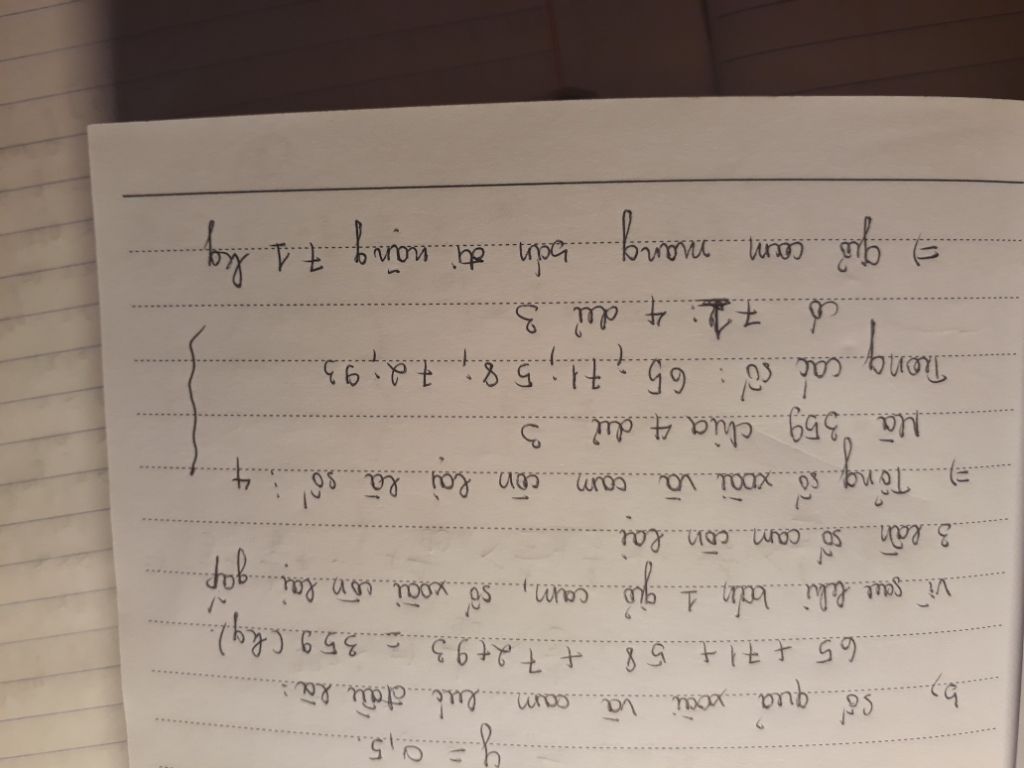 y = 0,5.
b, số quả xoài và cam lúc đầu là:
65 + 71 + 58 + 72 + 93 = 359 (kg).
Vì sau khi bán 1 giỏ cam, số xoài còn lại gấp
3 lần số cam còn lại
=) Tổng số xoài và cam còn lại là số : 4
Mà 359 chia 4 dư 3
Trong các số : 65 ; 71 ; 58 ; 72 ; 93
có 71 : 4 dư 3
=) giỏ cam mang bán đi nặng 71 kg